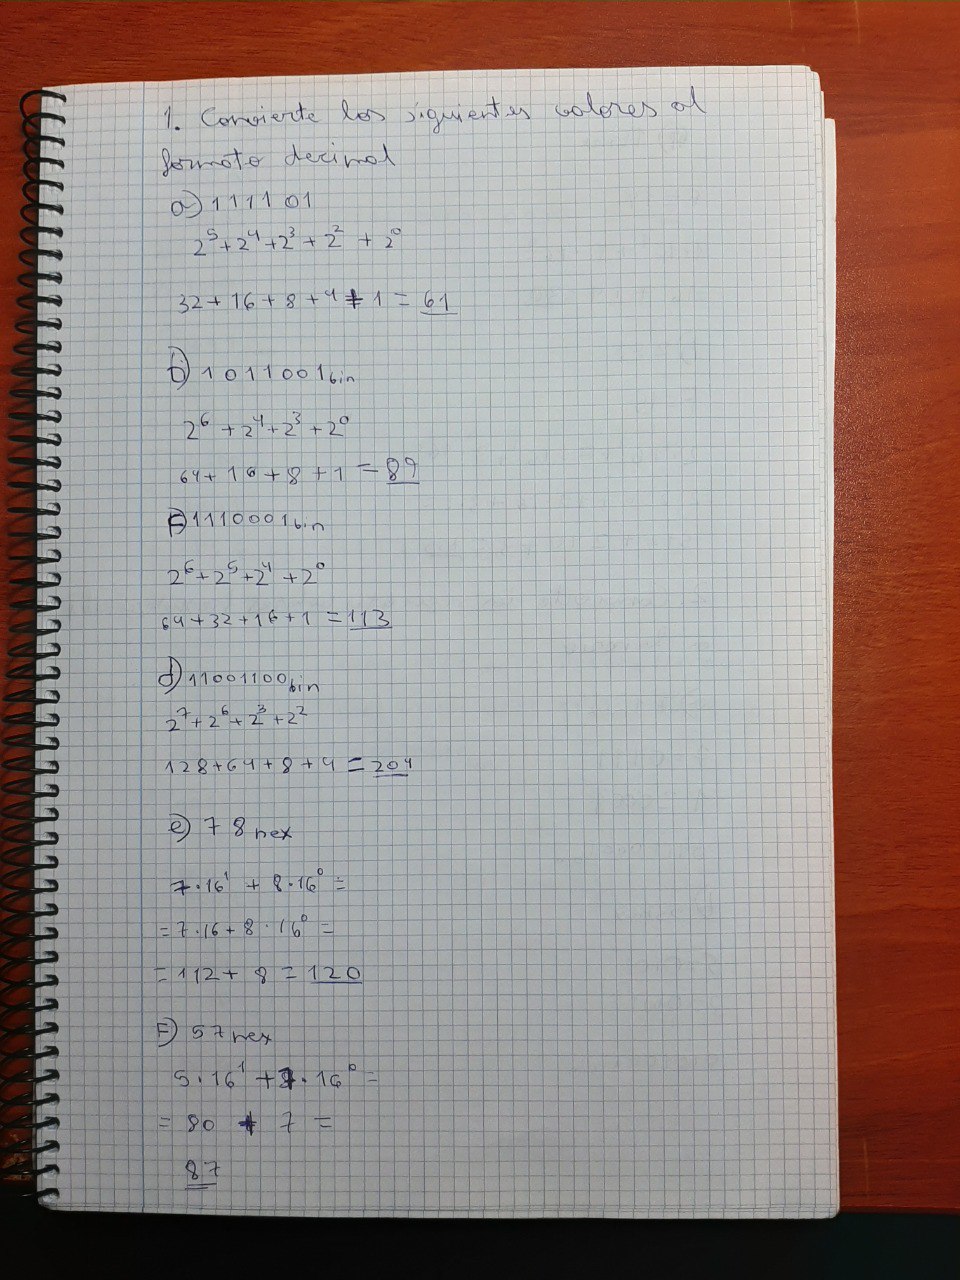 1. Convierte los siguientes valores al
formato decimal
a) 111101
2⁵+2⁴+2³+2² + 2⁰
32+16+8+4+1 = 61
b) 1011001bin
2⁶ +2⁴+2³+2⁰
64+16+8+1 = 89
c) 1110001bin
2⁶+2⁵+2⁴ +2⁰
64+32+16+1 = 113
d) 11001100bin
2⁷+2⁶+2³+2²
128+64+8+4 = 204
e) 78hex
7·16¹ + 8·16⁰ =
= 7·16+8·16⁰ =
= 112+ 8 = 120
F) 57hex
5·16¹ +7·16⁰ =
= 80 + 7 =
87